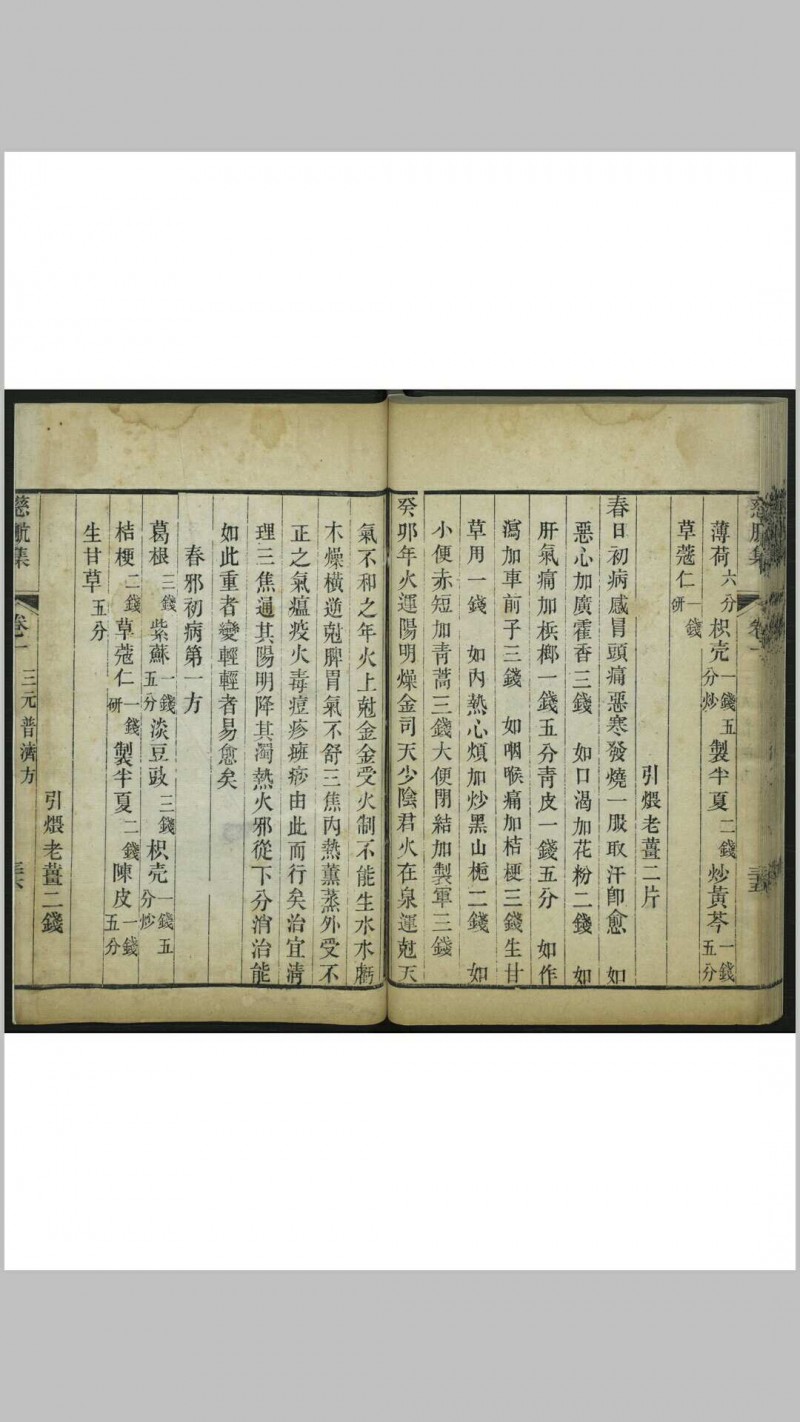 慈航集 卷一 三五
薄荷六分 枳壳一錢五分炒 製半夏二錢 炒黃芩一錢五分
草蔻仁一錢研
引煨老薑二片
春日初病感冒頭痛惡寒發燒一服取汗卽愈 如
惡心加廣霍香三錢 如口渴加花粉二錢 如
肝氣痛加梹榔一錢五分青皮一錢五分 如作
瀉加車前子三錢 如咽喉痛加桔梗三錢生甘
草用一錢 如內熱心煩加炒黑山梔二錢 如
小便赤短加青蒿三錢大便閉結加製軍三錢
癸卯年火運陽明燥金司天少陰君火在泉運尅天
氣不和之年火上尅金金受火制不能生水水虧
木燥橫逆尅脾胃氣不舒三焦內熱薰蒸外受不
正之氣瘟疫火毒痘疹癍痧由此而行矣治宜清
理三焦通其陽明降其濁熱火邪從下分消治能
如此重者變輕輕者易愈矣
春邪初病第一方
葛根三錢 紫蘇一錢五分 淡豆豉三錢 枳壳一錢五分炒
桔梗二錢 草蔻仁一錢研 製半夏二錢 陳皮一錢五分
生甘草五分
引煨老薑二錢
慈航集 卷一 三元普濟方 三六